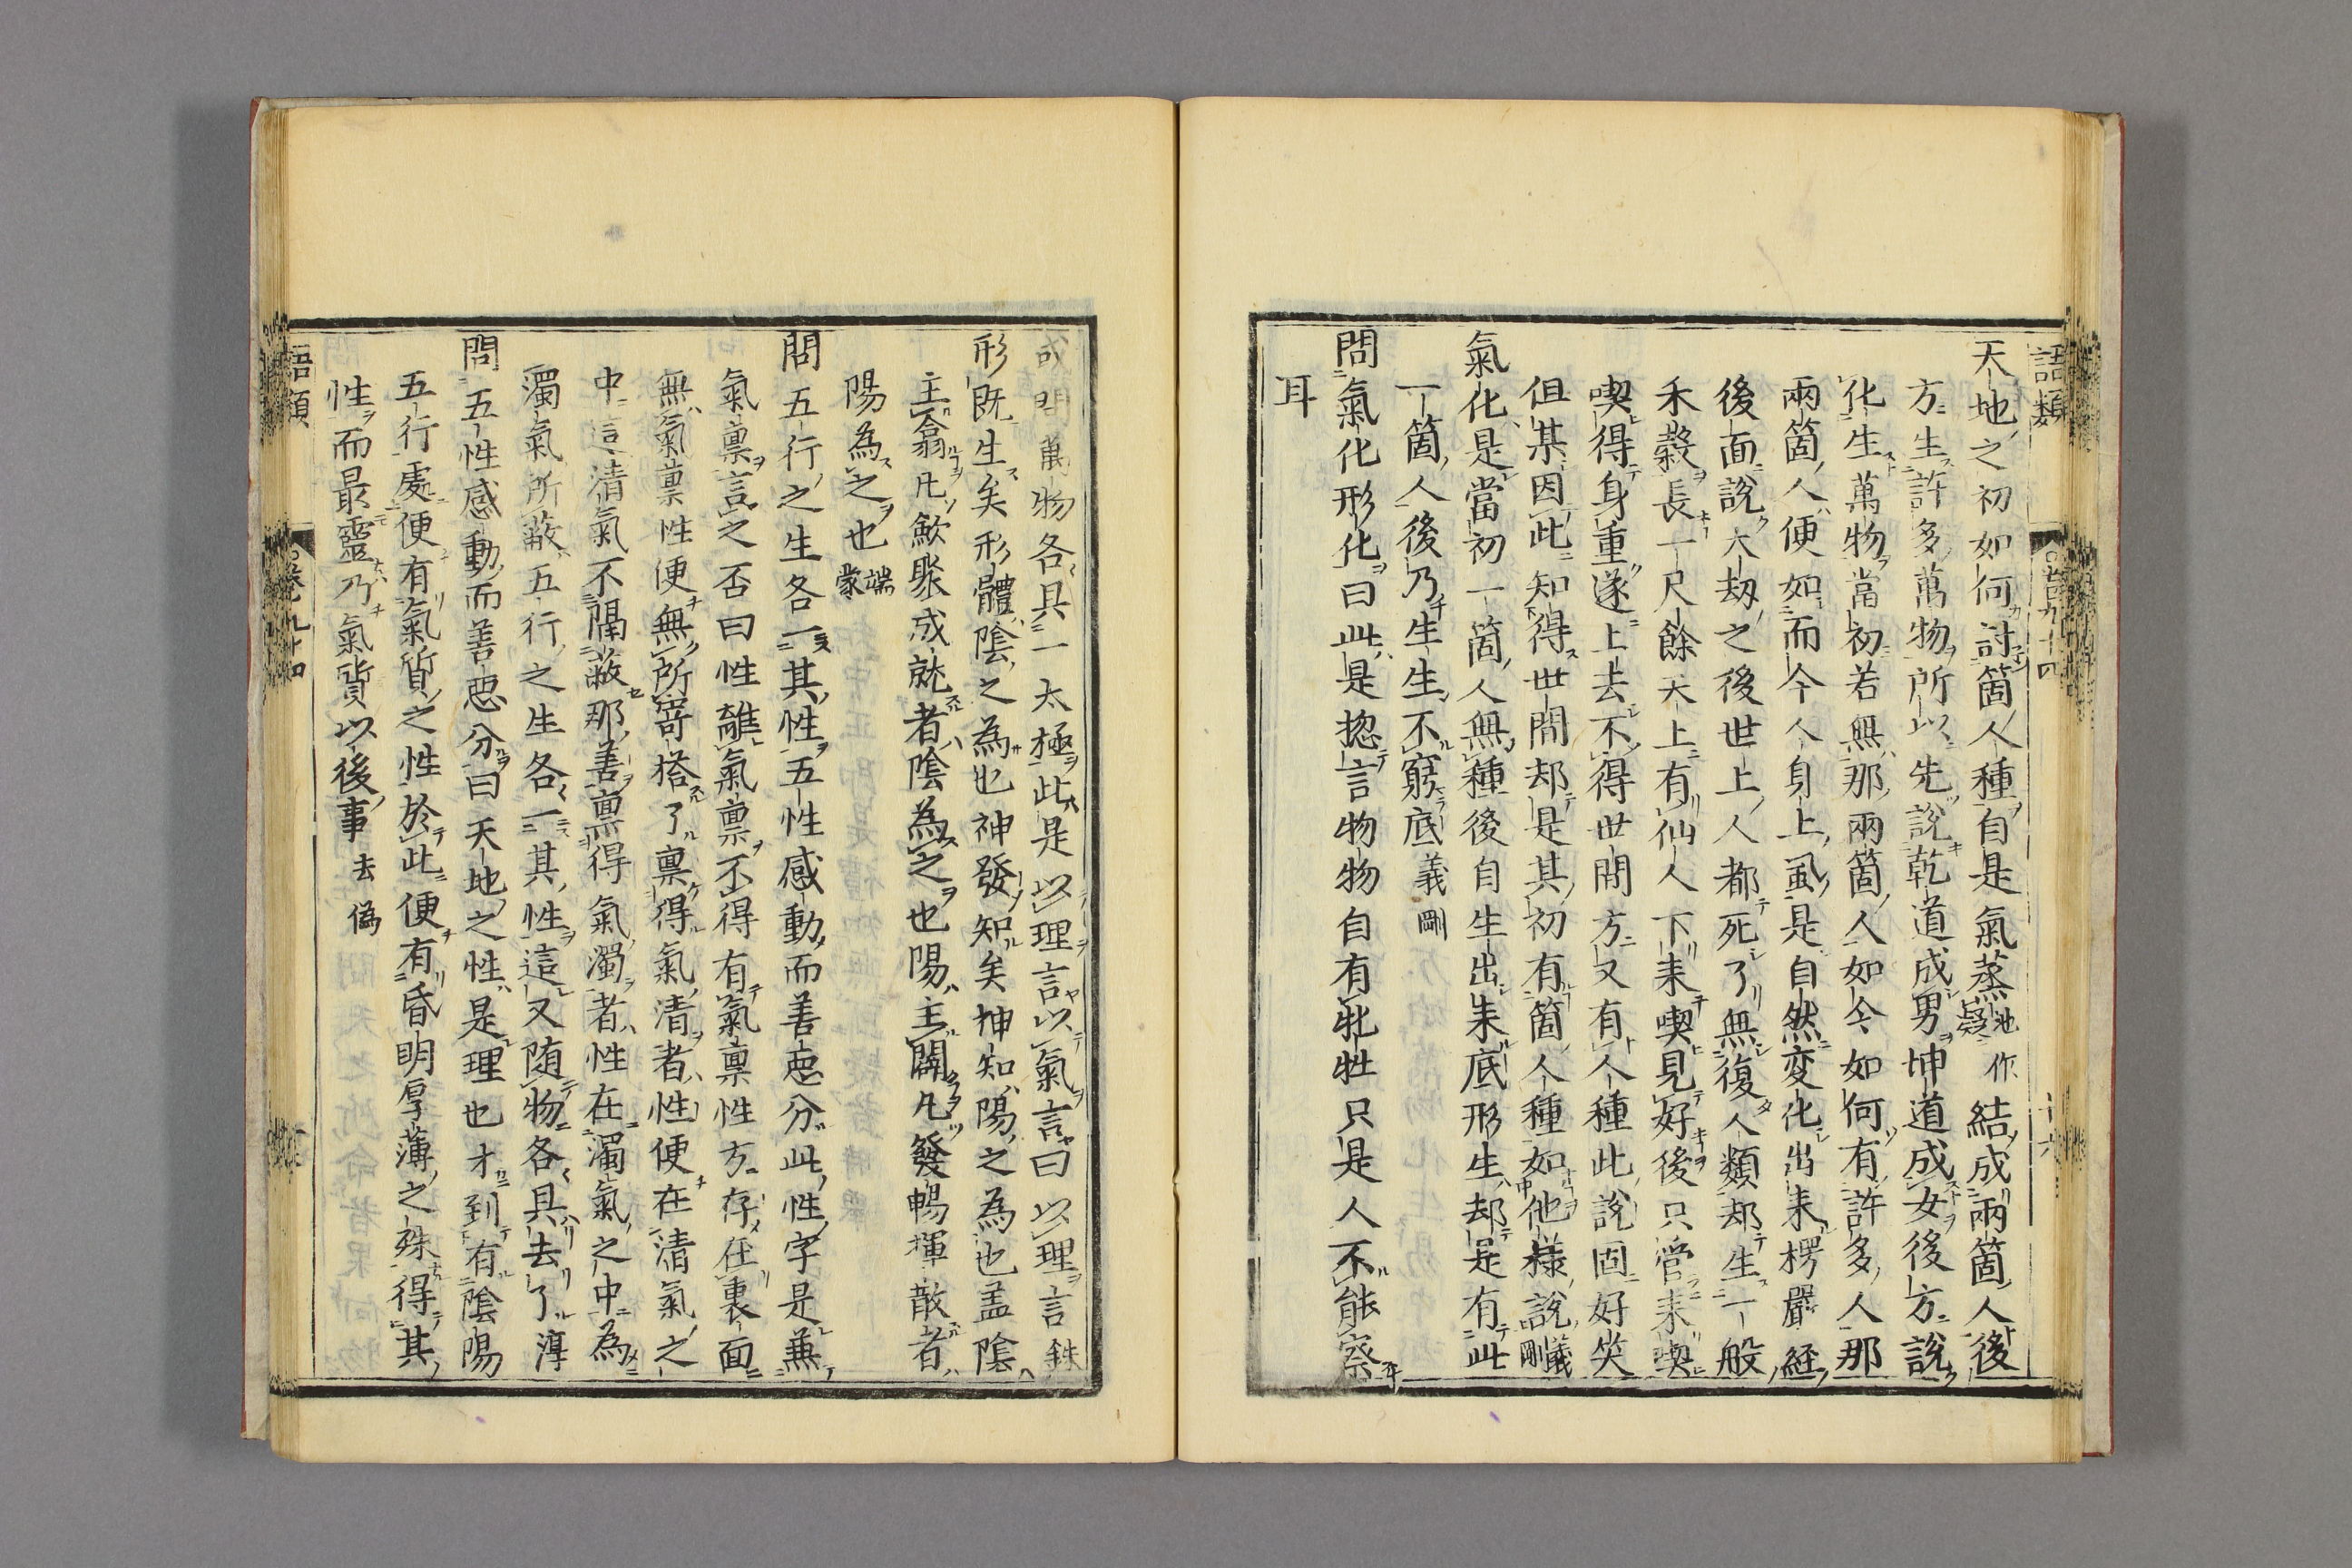 語類
卷九十四
十六
天地之初如何討箇人種自是氣蒸池作凝結成兩箇人後
方生許多萬物所以先說乾道成男坤道成女後方說
化生萬物當初若無那兩箇人如今如何有許多人那
兩箇人便如而今人身上虱是自然变化出来楞嚴經
後面說大劫之後世上人都死了無復人類却生一般
禾穀長一尺餘天上有仙人下来喫見好後只管来喫
喫得身重遂上去不得世間方又有人種此說固好笑
但某因此知得世間却是其初有箇人種如他樣說義剛
氣化是當初一箇人無種後自生出来底形生却是有此
一箇人後乃生生不窮底義剛
問氣化形化曰此是揔言物物自有牝牡只是人不能察
耳
或問萬物各具一太極此是以理言以氣言曰以理言銖
形既生矣形體陰之為也神發知矣神知陽之為也盖陰
主翕凡歛聚成就者陰為之也陽主闢凡發暢揮散者
陽為之也端蒙
問五行之生各一其性五性感動而善惡分此性字是兼
氣禀言之否曰性離氣禀不得有氣禀性方存在裏面
無氣禀性便無所寄搭了禀得氣清者性便在清氣之
中這清氣不隔蔽那善禀得氣濁者性在濁氣之中為
濁氣所蔽五行之生各一其性這又随物各具去了淳
問五性感動而善惡分曰天地之性是理也才到有陰陽
五行處便有氣質之性於此便有昏明厚薄之殊得其
性而最靈乃氣質以後事去偽
語類
卷九十四